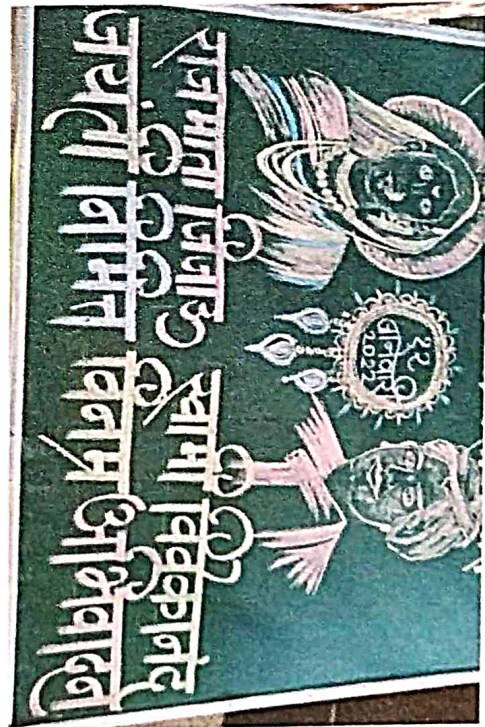 १२
जानेवारी
2022
राजमाता जिजाऊ स्वामी विवेकानंद
जयंती निमित्त विनम्र अभिवादन